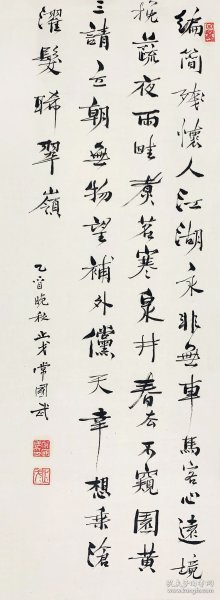 編簡殘懷人江湖永非無車馬客心遠境
梲蔬夜雨畦煮茗寒泉井春去不窺園黃
三請立朝無物望補外儻天幸想乘滄
濯髮晞翠嶺
乙酉晚秋止戈常國武